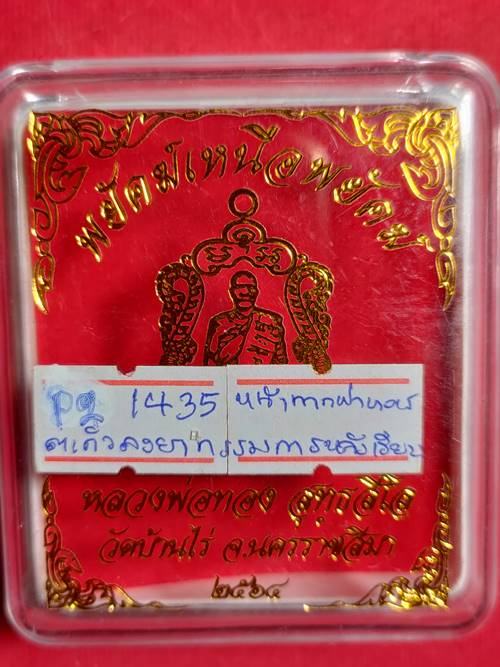 พยัคฆ์เหนือพยัคฆ์
pg 1435 หน้ากากฝาบาตร
ตะกั่วลงยากรรมการหลังเรียบ
หลวงพ่อทอง สุทธสีโล
วัดบ้านไร่ จ.นครราชสีมา
๒๕๖๔